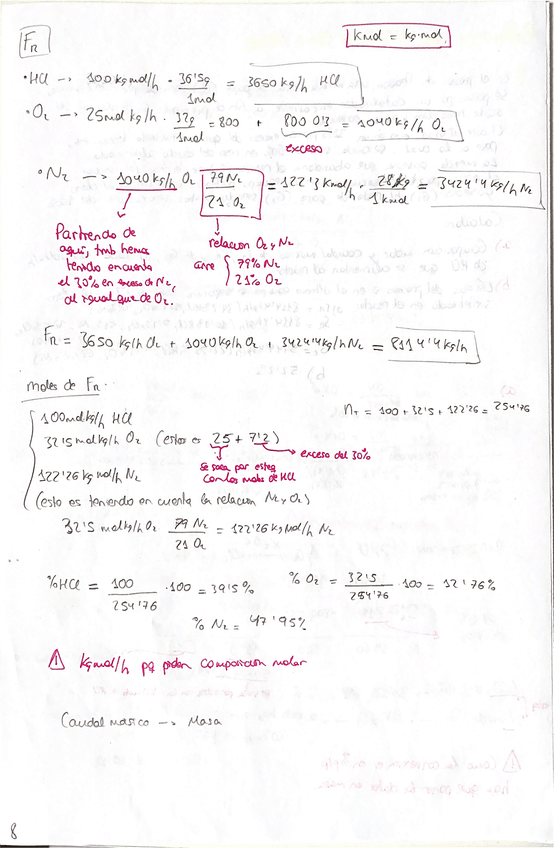 FR
Kmol = kg·mol
· HCl → 100 kgmol/h · 36'5g / 1mol = 3650 kg/h HCl
· O₂ → 25mol kg/h · 32g / 1mol = 800 + 800·0'3 = 1040 kg/h O₂
exceso
· N₂ → 1040kg/h O₂ 79 N₂ / 21 O₂ = 122'3 Kmol/h · 28 kg / 1 kmol = 3424'4 kg/h N₂
Partiendo de
aquí, tmb hemos
tenido en cuenta
el 30% en exceso de N₂,
al igual que de O₂.
relacion O₂ y N₂
aire { 79% N₂
21% O₂
FR = 3650 kg/h Cl₂ + 1040 kg/h O₂ + 3424'4 kg/h N₂ = 8114'4 kg/h
moles de FR
nT = 100 + 32'5 + 122'26 = 254'76
100 molkg/h HCl
32'5 molkg/h O₂ (esto es 25 + 7'2)
exceso del 30%
Se saca por esteq
con los moles de HCl
122'26 kg mol/h N₂
(esto es teniendo en cuenta la relacion N₂ y O₂)
32'5 molkg/h O₂ 79 N₂ / 21 O₂ = 122'26 kg mol/h N₂
%HCl = 100 / 254'76 · 100 = 39'5%
% O₂ = 32'5 / 254'76 · 100 = 12'76%
% N₂ = 47'95%
⚠ kgmol/h pq piden composición molar
Caudal másico → Masa
8